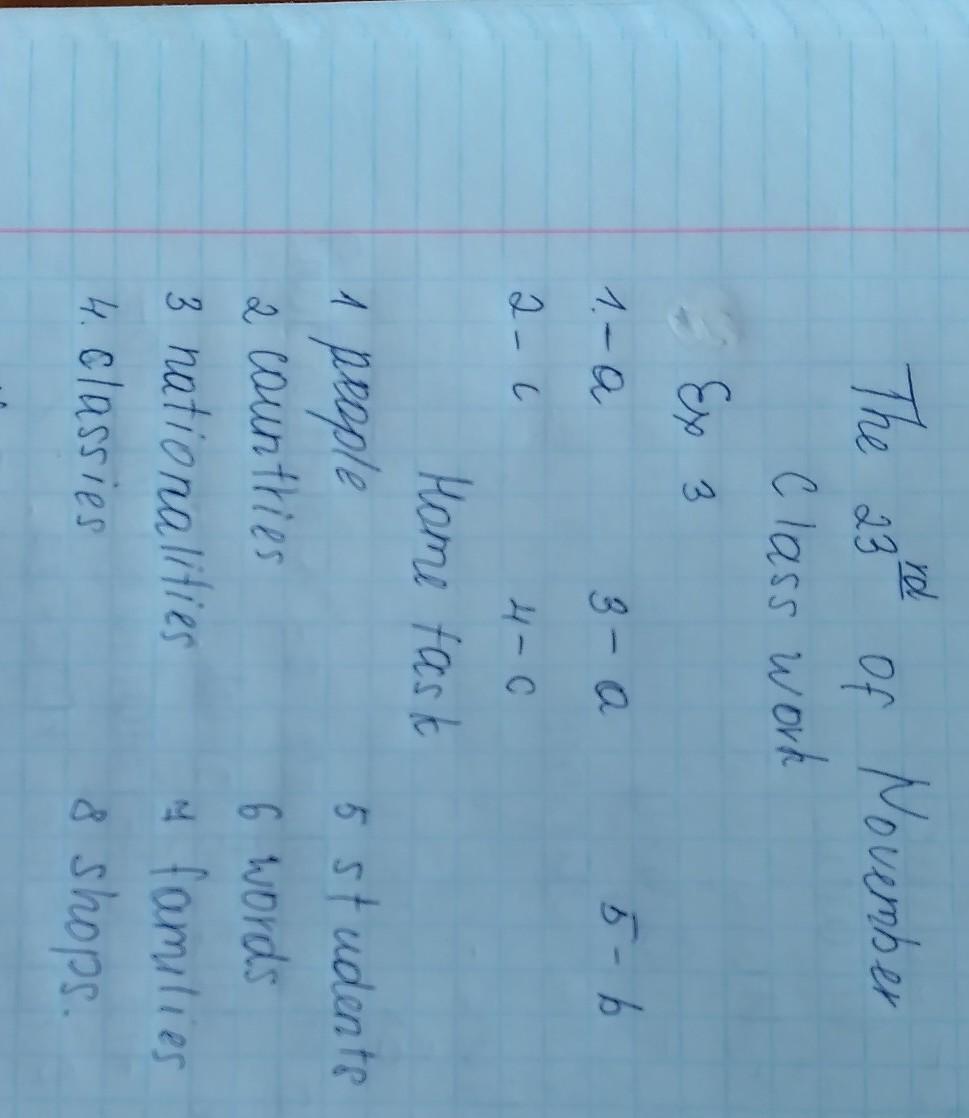 The 23rd of November
Class work
Ex 3
1.-a 3-a 5-b
2-c 4-c
Home task
1 people 5 students
2 countries 6 words
3 nationalities 7 families
4. classies 8 shops.